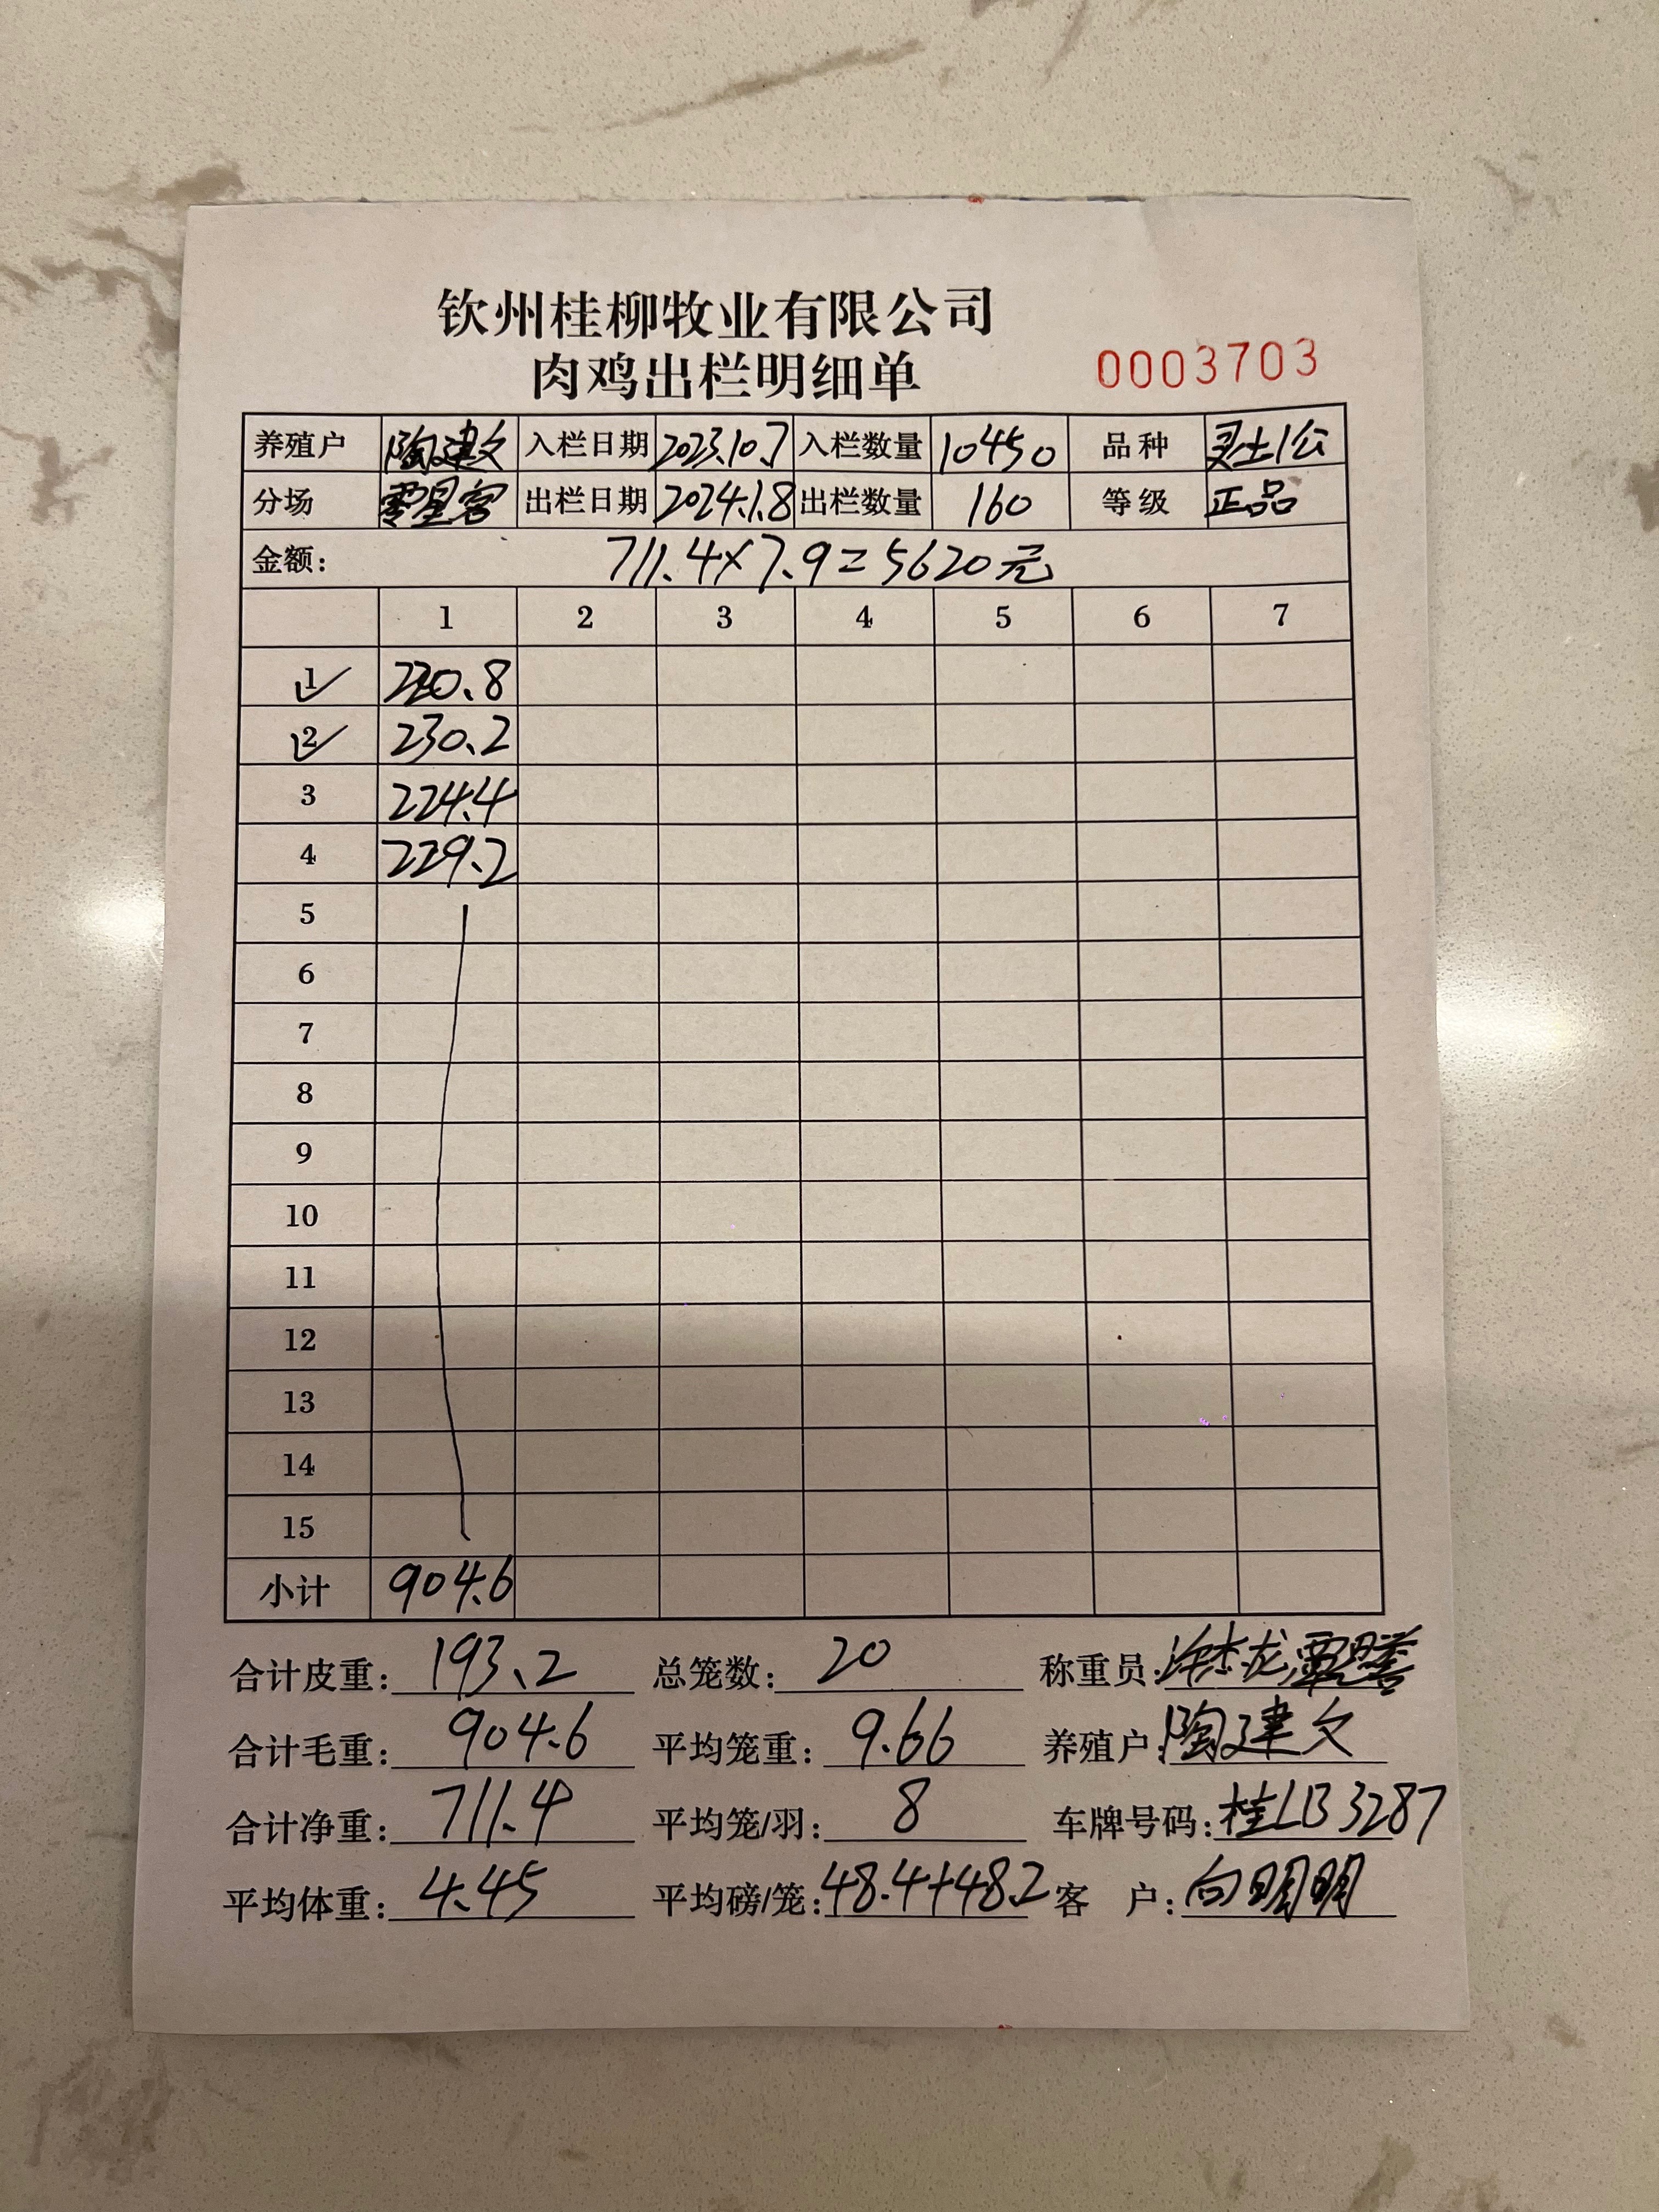 钦州桂柳牧业有限公司
肉鸡出栏明细单 0003703
养殖户 陶建文 入栏日期 2023.10.7 入栏数量 10450 品种 灵土1公
分场 零星客 出栏日期 2024.1.8 出栏数量 160 等级 正品
金额: 711.4×7.9=5620元
1 2 3 4 5 6 7
1 220.8
2 230.2
3 224.4
4 229.2
5
6
7
8
9
10
11
12
13
14
15
小计 904.6
合计皮重: 193.2 总笼数: 20 称重员:
合计毛重: 904.6 平均笼重: 9.66 养殖户: 陶建文
合计净重: 711.4 平均笼/羽: 8 车牌号码: 桂LB3287
平均体重: 4.45 平均磅/笼: 48.4+48.2 客 户: 向明明